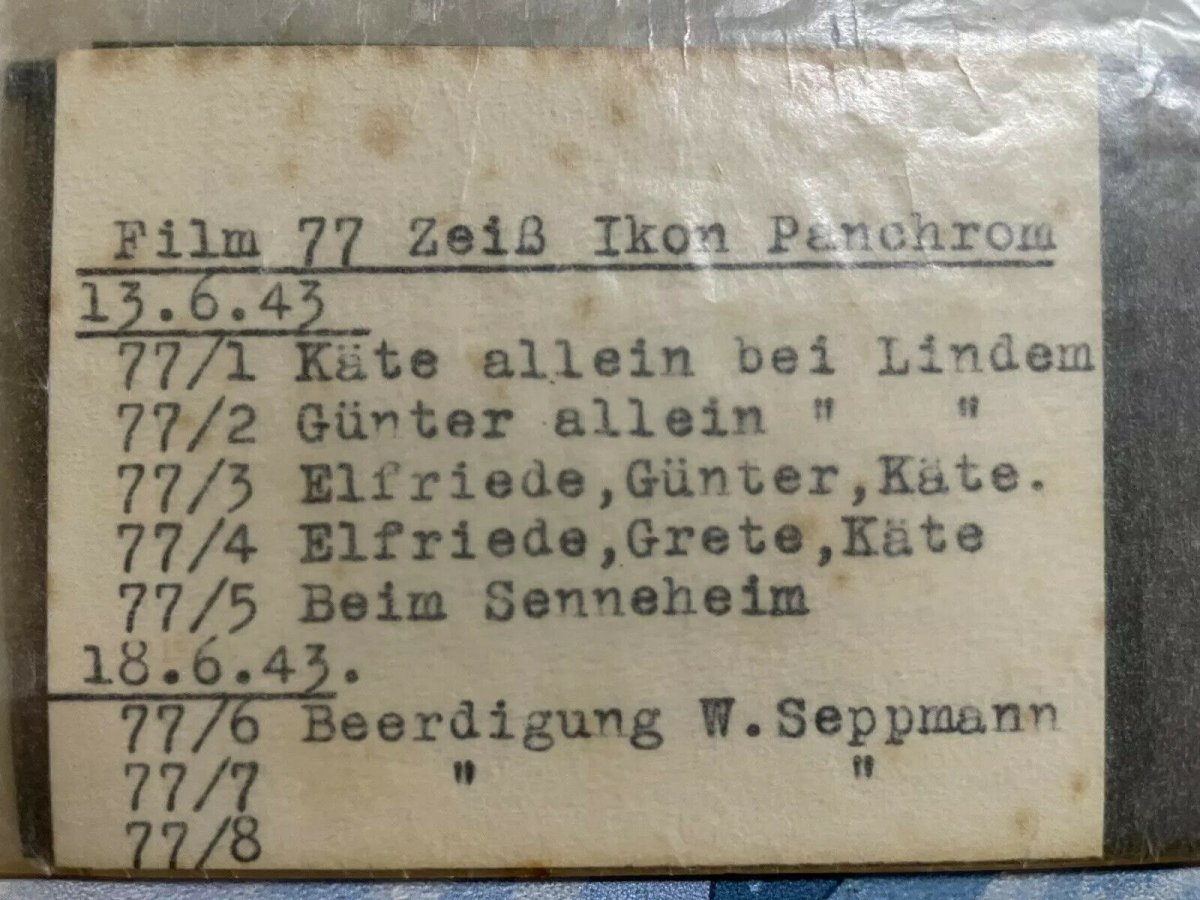 Film 77 Zeiß Ikon Panchrom
13.6.43
77/1 Käte allein bei Lindem
77/2 Günter allein " "
77/3 Elfriede,Günter,Käte.
77/4 Elfriede,Grete,Käte
77/5 Beim Senneheim
18.6.43.
77/6 Beerdigung W.Seppmann
77/7 " "
77/8